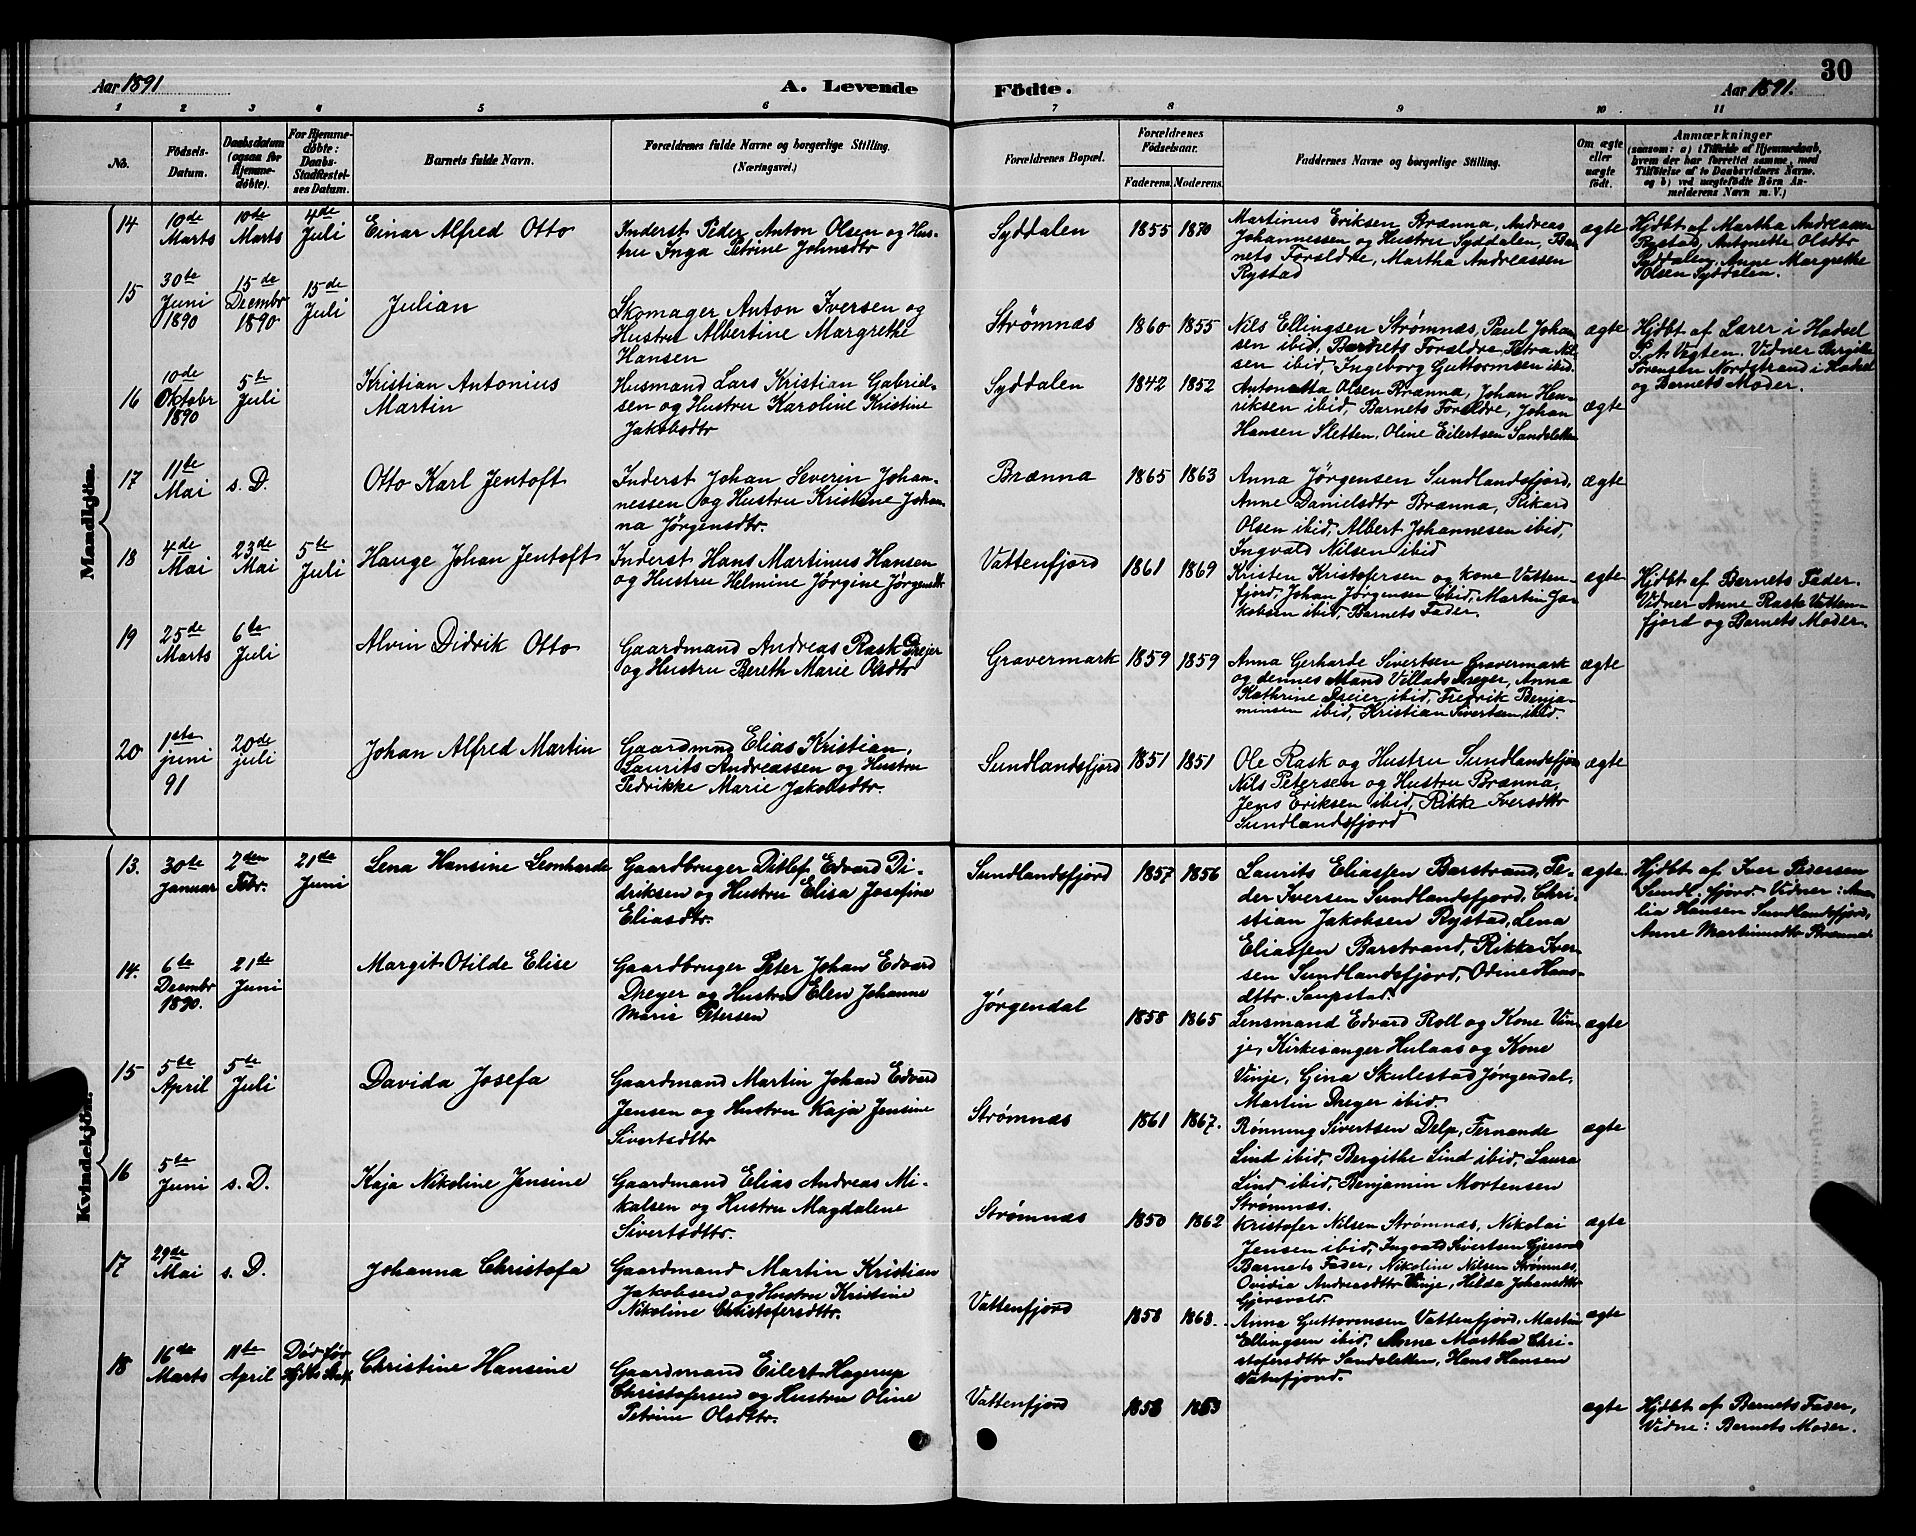 Aar 1891
A. Levende
Födte.
Aar 1891.
30
1 2 3 4 5 6 7 8 9 10 11
No.
Födsels-
Datum.
Daabsdatum
(ogsaa for
Hjemme-
döbte).
For Hjemme-
döbte:
Daabs-
Stadfæstel-
ses Datum.
Barnets fulde Navn.
Forældrenes fulde Navne og borgerlige Stilling.
(Næringsvei.)
Forældrenes Bopæl.
Forældrenes
Födselsaar.
Faderens. Moderens.
Faddernes Navne og borgerlige Stilling.
Om ægte
eller
uægte
födt.
Anmærkninger
(saasom: a) i Tilfælde af Hjemmedaab,
hvem der har forrettet samme, med
Tilföielse af to Daabsvidners Navne,
og b) ved uægtefödte Börn An-
melderens Navn m. V.)
Mandkjön.
14
10de
Marts
10de
Marts
4de
Juli
Einar Alfred Otto
Inderst Peder Anton Olsen og Hus-
tru Inga Petrine Johnsdtr
Syddalen
1855 1870
Martinus Eriksen Brænna, Andreas
Johannessen og Hustru Syddalen, Bar-
nets Forældre, Martha Andreassen
Rystad
ægte
Hjdbt af Martha Andreassen
Rystad, Antonette Olsdtr
Syddalen, Anne Margrethe
Olsen Syddalen.
15
30te
Juni
1890
15de
Decembr
1890
15de
Juli
Julian
Skomager Anton Iversen og
Hustru Albertine Margrethe
Hansen
Strømnæs
1860 1855
Nils Ellingsen Strømnæs, Paul Johan-
sen ibid, Barnets Forældre, Petra Nil-
sen ibid, Ingeborg Guttormsen ibid.
ægte
Hjdbt af Lærer i Hadsel
Vidner
Sørensen Nordstrand i Hadsel
og Barnets Moder.
16
10de
Oktobr
1890
5te
Juli
Kristian Antonius
Martin
Husmand Lars Kristian Gabriel-
sen og Hustru Karoline Kristine
Jakobsdtr
Syddalen
1842 1852
Antonetta Olsen Brænna, Johan Hen-
riksen ibid, Barnets Forældre, Johan
Hansen Sletten, Oline Eilertsen Sandsletten
ægte
17
11te
Mai
s. D.
Otto Karl Jentoft
Inderst Johan Severin Johan-
nessen og Hustru Kristine Johan-
na Jørgensdtr.
Brænna
1865 1863
Anna Jørgensen Sundlandsfjord,
Anne Danielsdtr Brænna, Rikard
Olsen ibid, Albert Johannesen ibid,
Ingvald Nilsen ibid
ægte
18
4de
Mai
23de
Mai
5te
Juli
Hauge Johan Jentoft
Inderst Hans Martinus Hansen
og Hustru Helmine Jørgine Jørgensdtr
Vattenfjord
1861 1869
Kristen Kristofersen og kone Vatten-
fjord, Johan Jørgensen ibid, Martin Ja-
kobsen ibid, Barnets Fader.
ægte
Hjdbt af Barnets Fader.
Vidner Anne Rask Vatten-
fjord og Barnets Moder.
19
25de
Marts
6te
Juli
Alvin Didrik Otto
Gaardmand Andreas Rask Dreyer
og Hustru Bereth Marie Olsdtr
Gravermark
1859 1859
Anna Gerharde Sivertsen Gravermark
og dennes Mand Villads Dreyer, Anna
Kathrine Dreier ibid, Fredrik Benja-
minsen ibid, Kristian Sivertsen ibid.
ægte
20
1ste
juni
91
20de
juli
Johan Alfred Martin
Gaardmnd Elias Kristian,
Laurits Andreassen og Hustru
Fedrikke Marie Jakobsdtr.
Sundlandsfjord
1851 1851
Ole Rask og Hustru Sundlandsfjor
Nils Petersen og Hustru Brænna,
Jens Eriksen ibid, Rikk Iversdtr
Sundlandsfjord
ægte
Kvindekjön.
13.
30te
Januar
2den
Febr.
21de
Juni
Lena Hansine Leonharde
Gaardbruger Ditlef Edvard Di-
driksen og Hustru Elisa Josefine
Eliasdtr.
Sundlandsfjord
1857 1856
Laurits Eliassen Barstrand, Pe-
der Iversen Sundlandsfjord, Chri-
stian Jakobsen Rystad, Lena
Eliassen Barstrand, Rikka Iver-
sen Sundlandsfjord, Odine Hans-
dttr. Saupstad.
ægte
Hjdbt af Iver Pedersen
Sundl.fjord. Vidner: Ama-
lia Hansen Sundlandsfjord,
Anne Martinusdtr Brænna
14.
6te
Decembr
1890.
21de
Juni
Margit Otilde Elise
Gaardbruger Peter Johan Edvard
Dreyer og Hustru Elen Johanne
Marie Petersen
Jørgendal
1858 1865
Lensmand Edvard Roll og Kone Vin-
je, Kirkesanger Hulaas og Kone
Vinje, Gina Skulestad Jørgendal,
Martin Dreyer ibid
ægte
15
5te
April
5te
Juli
Davida Josefa
Gaardmand Martin Johan Edvard
Jensen og Hustru Kaja Jensine
Sivertsdttr
Strømnæs
1861 1867.
Rønning Sivertsen Delp, Fernande
Lind ibid, Bergithe Lind ibid, Laura
Lind ibid, Benjamin Mortensen
Strømnæs.
ægte
16
5te
Juni
s. D.
Kaja Nikoline Jensine
Gaardmand Elias Andreas Mi-
kalsen og Hustru Magdalene
Sivertsdttr.
Strømnæs
1850 1862
Kristofer Nilsen Strømnæs, Nikolai
Jensen ibid, Ingvald Sivertsen Gjersvol
Barnets Fader, Nikoline Nilsen Strømnæs,
Ovidia Andreasdttr Vinje, Hilda Johansdttr
Gjersvold.
ægte
17
29de
Mai
s. D.
Johanna Christofa
Gaardmand Martin Kristian
Jakobsen og Hustru Kristine
Nikoline Christofersdttr.
Vattenfjord
1858 1863.
Anna Guttormsen Vattenfjord, Martin
Ellingsen ibid, Anne Martha Chri-
stofersdttr Sandsletten, Hans Hansen
Vatnfjord.
ægte
18
16de
Marts
11te
April
Død før
Christine Hansine
Gaardmand Eilert Hagerup
Christofersen og Hustru Oline
Petrine Olsdttr.
Vattenfjord
1858 1863
ægte
Hjdbt af Barnets Fader,
Vidne: Barnets Moder.